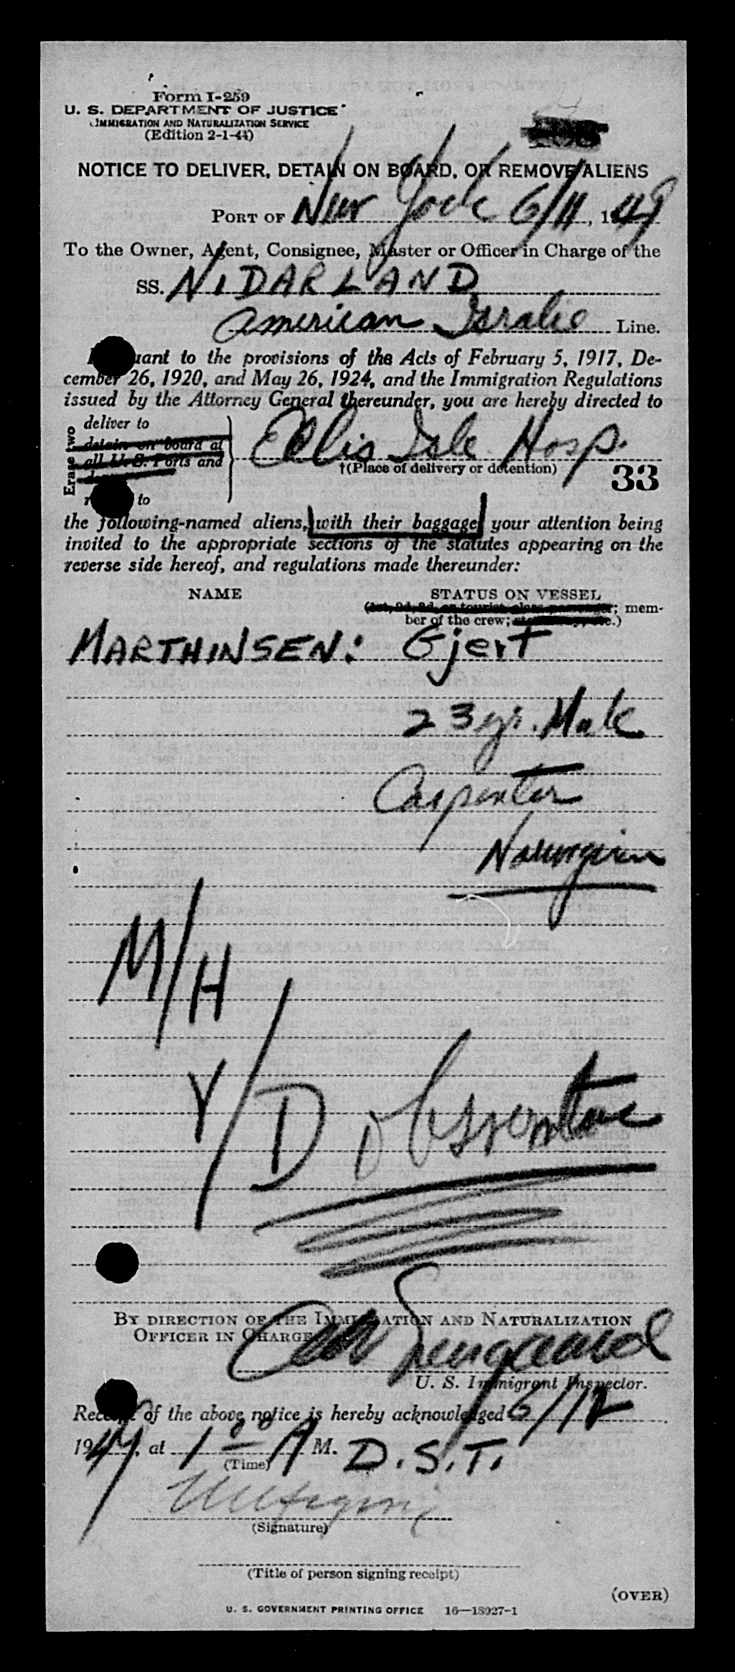 Form I-259
U. S. DEPARTMENT OF JUSTICE
IMMIGRATION AND NATURALIZATION SERVICE
(Edition 2-1-44)
NOTICE TO DELIVER, DETAIN ON BOARD, OR REMOVE ALIENS
PORT OF New York 6/11, 1949
To the Owner, Agent, Consignee, Master or Officer in Charge of the
SS. NIDARLAND
American Isralie Line.
uant to the provisions of the Acts of February 5, 1917, De-
cember 26, 1920, and May 26, 1924, and the Immigration Regulations
issued by the Attorney General thereunder, you are hereby directed to
deliver to
detain on board at
all U. S. Ports and
Erase two
Ellis Isle Hosp.
†(Place of delivery or detention)
33
to
the following-named aliens, with their baggage, your attention being
invited to the appropriate sections of the statutes appearing on the
reverse side hereof, and regulations made thereunder:
NAME STATUS ON VESSEL
(1st, 2d, 3d, or tourist class passenger; mem-
ber of the crew; etc.)
MARTHINSEN: Gjert
23 yr. Male
Carpenter
Norwegian
M/H
Y/D
BY DIRECTION OF THE IMMIGRATION AND NATURALIZATION
OFFICER IN CHARGE
U. S. Immigrant Inspector.
Receipt of the above notice is hereby acknowledged 6/12
1949, at 1 00 A M. D.S.T.
(Time)
(Signature)
(Title of person signing receipt)
(OVER)
U. S. GOVERNMENT PRINTING OFFICE 16—18927-1